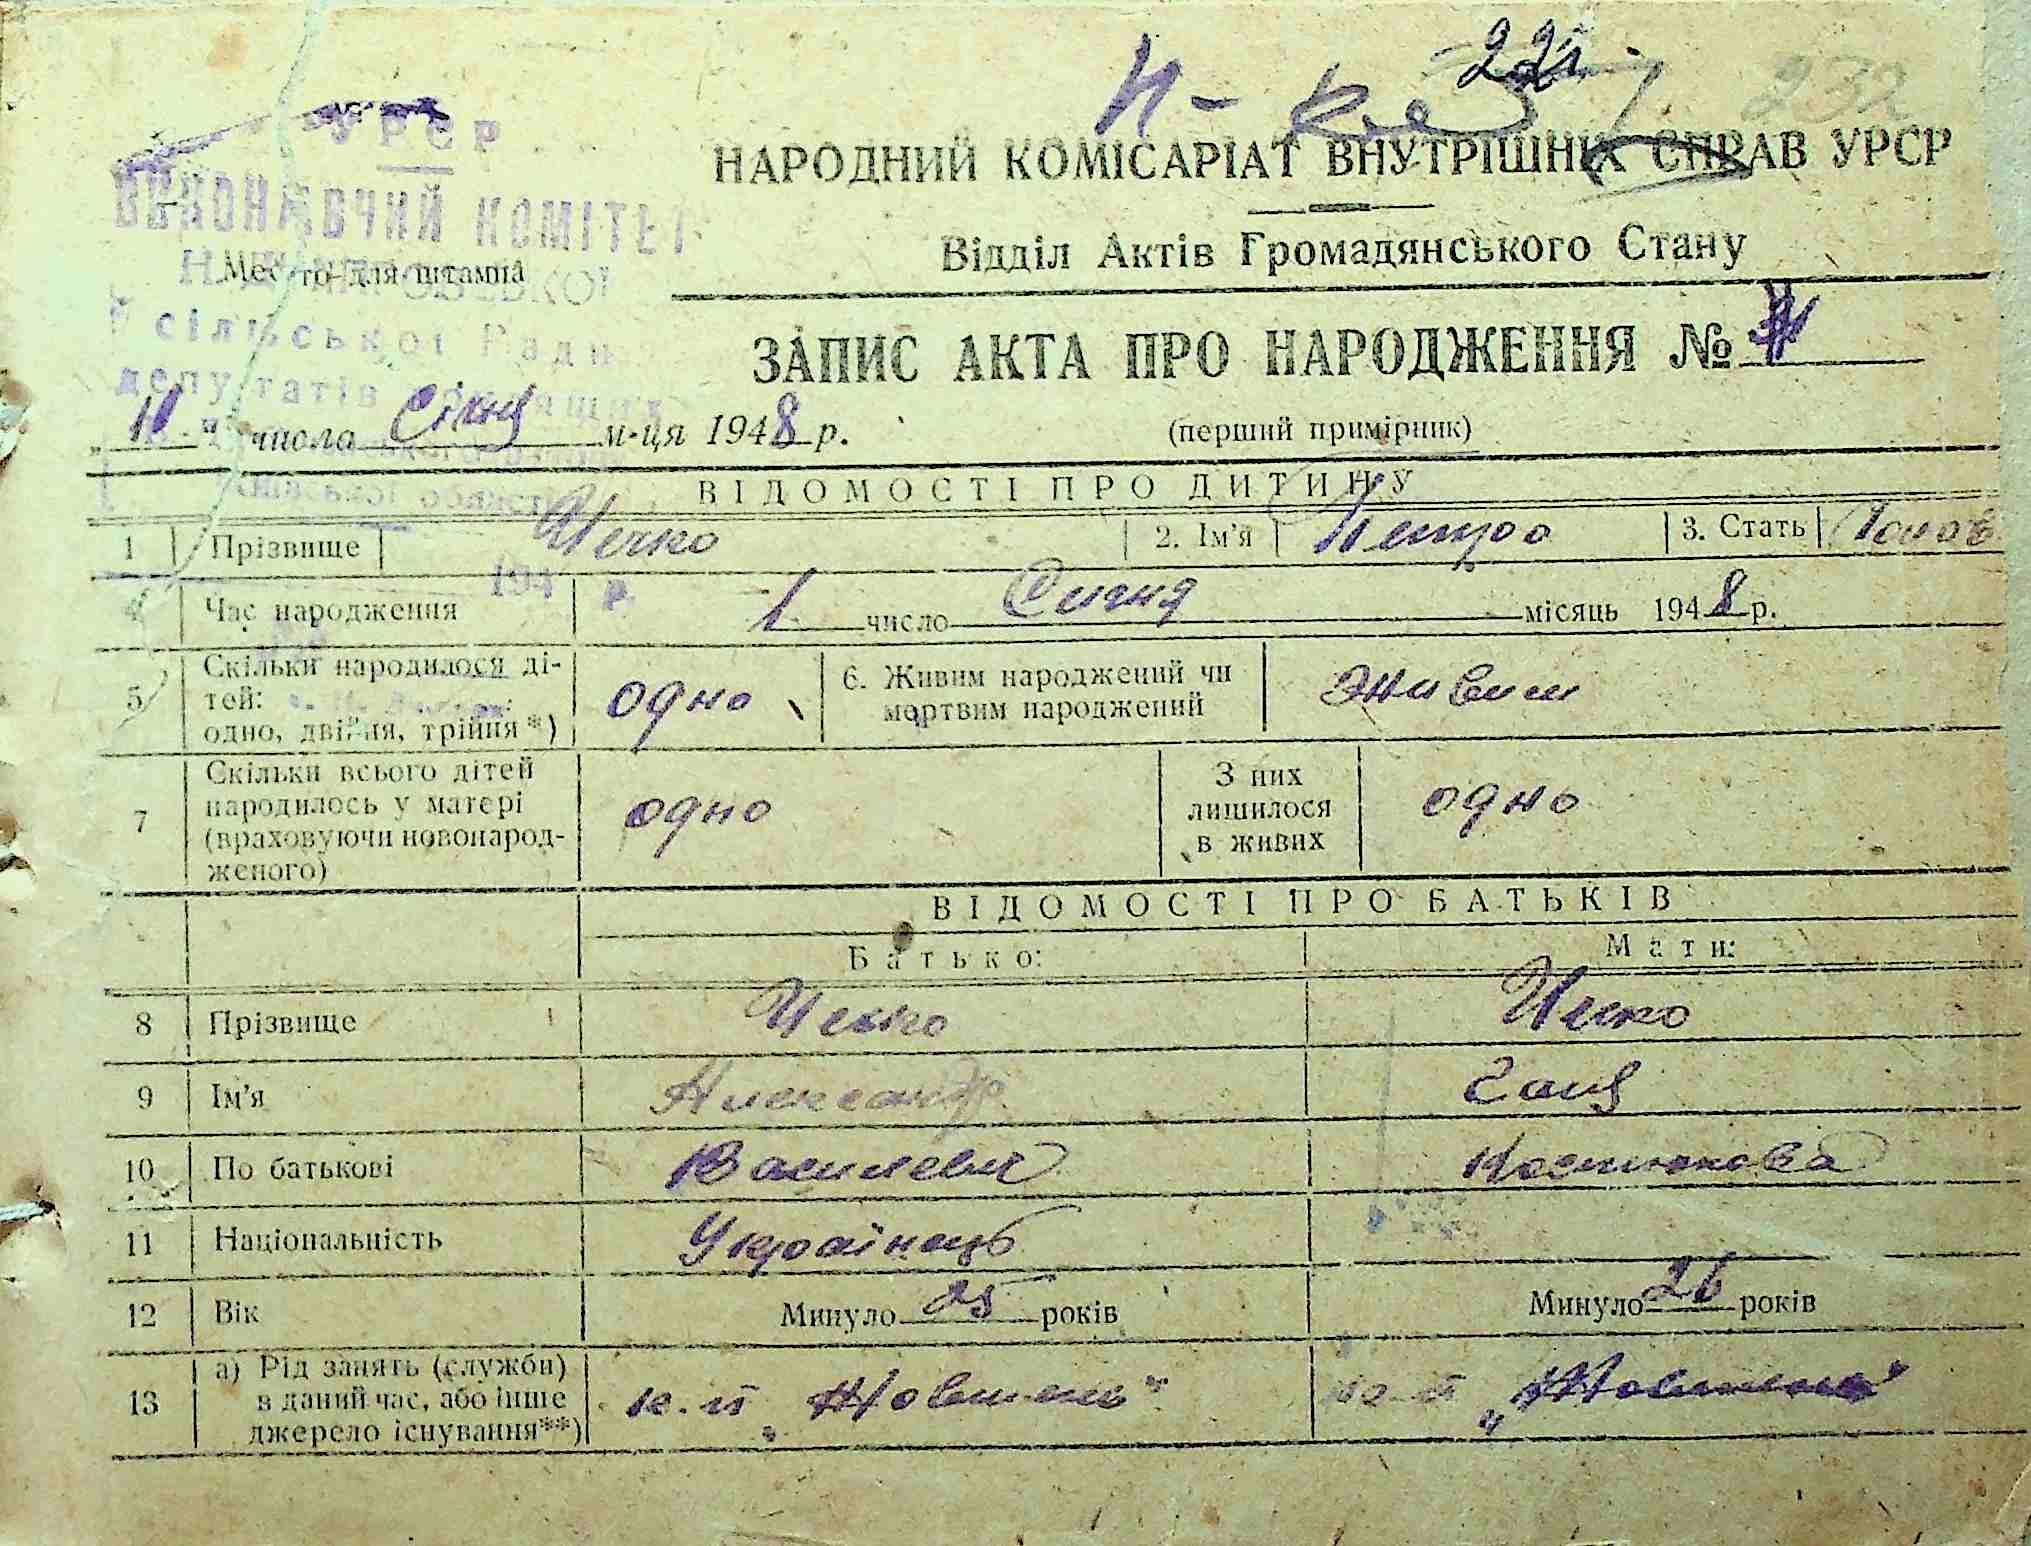 221
232
УРСР
ВИКОНАВЧИЙ КОМІТЕТ
сільської Ради
депутатів
області
194 р.
Место для штампа
НАРОДНИЙ КОМІСАРІАТ ВНУТРІШНІХ СПРАВ УРСР
Відділ Актів Громадянського Стану
ЗАПИС АКТА ПРО НАРОДЖЕННЯ №
„ " числа Січня м-ця 1948 р.
(перший примірник)
ВІДОМОСТІ ПРО ДИТИНУ
1 Прізвище 2. Ім'я Петро 3. Стать
4 Час народження 1 число Січня місяць 1948 р.
5 Скільки народилося ді-
тей:
одно, двійня, трійня*) одно
6. Живим народжений чи
мертвим народжений живим
7 Скільки всього дітей
народилось у матері
(враховуючи новонарод-
женого) одно
З них
лишилося
в живих одно
ВІДОМОСТІ ПРО БАТЬКІВ
Батько: Мати:
8 Прізвище
9 Ім'я Александр Галя
10 По батькові Василевич
11 Національність Українець
12 Вік Минуло 25 років Минуло 26 років
13 а) Рід занять (служби)
в даний час, або інше
джерело існування**)